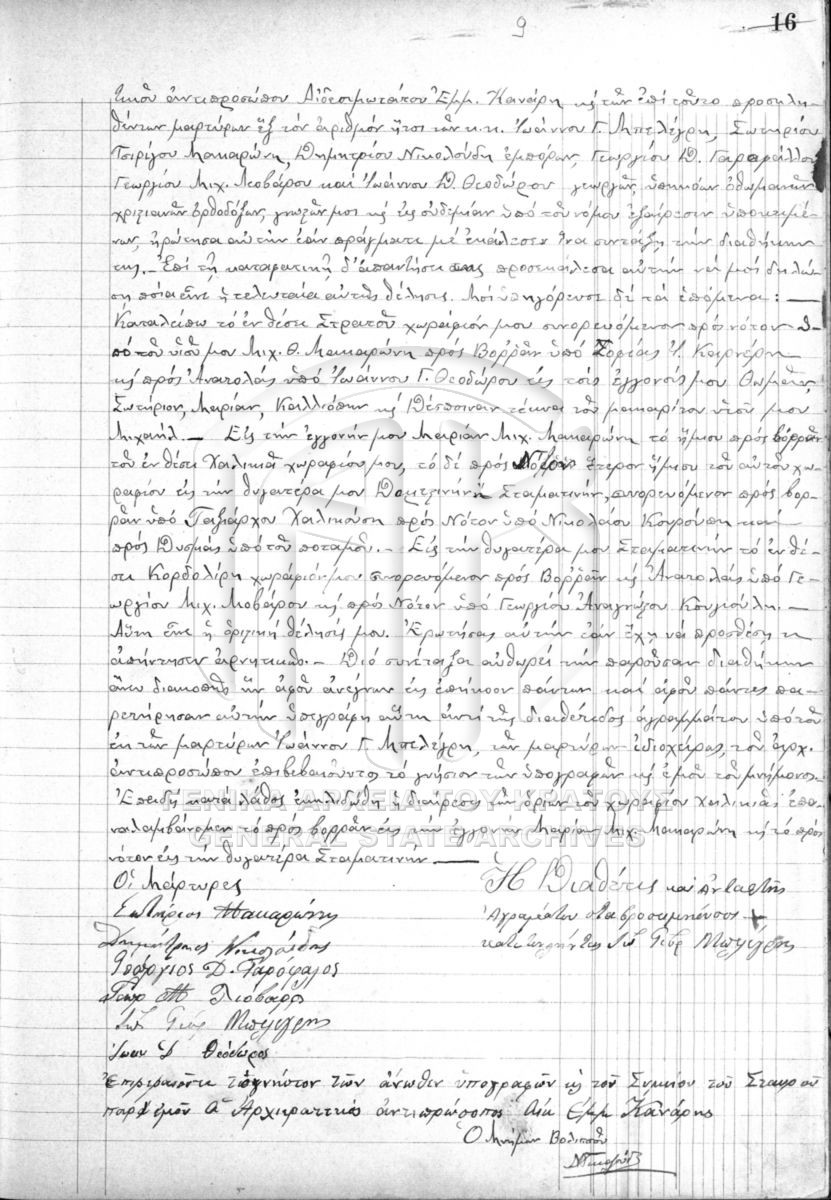 9
16
τικοῦ ἀντιπροσώπου Αἰδεσιμωτάτου Ἐμμ. Κανάρη κ̀ τῶν ἐπὶ τούτῳ προσκλη-
θέντων μαρτύρων ἓξ τὸν ἀριθμὸν ἤτοι τῶν κ.κ. Ἰωάννου Γ. Μπελέγρη, Σωτηρίου
Τσιρίγου Μακαρώνη, Δημητρίου Νικολούδη ἐμπόρων, Γεωργίου Δ. Γαροφάλλου
Γεωργίου Μιχ. Λιοβάρου καὶ Ἰωάννου Δ. Θεοδώρου γεωργῶν, ὑπηκόων ὀθωμανῶν
χριστιανῶν ὀρθοδόξων, γνωστῶν μοι κ̀ εἰς οὐδεμίαν ὑπὸ τοῦ νόμου ἐξαίρεσιν ὑποκειμέ-
νων, ἠρώτησα αὐτὴν ἐὰν πράγματι μὲ ἐκάλεσεν ἵνα συντάξω τὴν διαθήκην
της.- Ἐπὶ τῇ καταφατικῇ δ' ἀπαντήσει της προσεκάλεσα αὐτὴν νὰ μοὶ δηλώ-
σῃ ποία εἶνε ἡ τελευταία αὐτῆς θέλησις. Μοὶ ὑπηγόρευσε δὲ τὰ ἑπόμενα: —
Καταλείπω τὸ ἐν θέσει Στρατοῦ χωράφιόν μου συνορευόμενον πρὸς νότον ὑ-
πὸ τοῦ υἱοῦ μου Μιχ. Θ. Μακαρώνη πρὸς Βορρᾶν ὑπὸ Σοφίας Ἰ. Καρνέρη
κ̀ πρὸς Ἀνατολὰς ὑπὸ Ἰωάννου Γ. Θεοδώρου εἰς τοὺς ἐγγονούς μου Θωμᾶν,
Σωτήριον, Μαρίαν, Καλλιόπην κ̀ Δέσποιναν τέκνα τοῦ μακαρίτου υἱοῦ μου
Μιχαήλ.- Εἰς τὴν ἐγγονήν μου Μαρίαν Μιχ. Μακαρώνη τὸ ἥμισυ πρὸς βορρᾶν
τοῦ ἐν θέσει Χαλικιᾶ χωραφίου μου, τὸ δὲ πρὸς Νότον ἕτερον ἥμισυ τοῦ αὐτοῦ χω-
ραφίου εἰς τὴν θυγατέρα μου Σταματινήν, συνορευόμενον πρὸς βορ-
ρᾶν ὑπὸ Ταξιάρχου Χαλικούση πρὸς Νότον ὑπὸ Νικολάου Κουρούπη καὶ
πρὸς Δυσμὰς ὑπὸ τοῦ ποταμοῦ.- Εἰς τὴν θυγατέρα μου Σταματινὴν τὸ ἐν θέ-
σει Κορδολίρη χωράφιόν μου συνορευόμενον πρὸς Βορρᾶν κ̀ Ἀνατολὰς ὑπὸ Γε-
ωργίου Μιχ. Λιοβάρου κ̀ πρὸς Νότον ὑπὸ Γεωργίου Ἀναγνώστου Κουγιούλη.-
Αὕτη εἶνε ἡ ὁριστικὴ θέλησίς μου. Ἐρωτήσας αὐτὴν ἐὰν ἔχῃ νὰ προσθέσῃ τι
ἀπήντησεν ἀρνητικῶς.- Διὸ συνέταξα αὐθωρεὶ τὴν παροῦσαν διαθήκην
ἄνευ διακοπῆς ἣν ἀφοῦ ἀνέγνων εἰς ἐπήκοον πάντων καὶ ἀφοῦ πάντες πα-
ρετήρησαν αὐτὴν ὑπεγράφη αὕτη ἀντὶ τῆς διαθέτιδος ἀγραμμάτου ὑπὸ τοῦ
ἐκ τῶν μαρτύρων Ἰωάννου Γ. Μπελέγρη, τῶν μαρτύρων ἰδιοχείρως, τοῦ ἀρχ.
ἀντιπροσώπου ἐπιβεβαιοῦντος τὸ γνήσιον τῶν ὑπογραφῶν κ̀ ἐμοῦ τοῦ μνήμονος.-
Ἐπειδὴ κατὰ λάθος ἐκηλιδώθη ἡ διαίρεσις τῶν ὁρίων τοῦ χωραφίου Χαλικιᾶς ἐπα-
ναλαμβάνομεν τὸ πρὸς βορρᾶν εἰς τὴν ἐγγονὴν Μαρίαν Μιχ. Μακαρώνη κ̀ τὸ πρὸς
νότον εἰς τὴν θυγατέρα Σταματινήν.—
ΓΕΝΙΚΑ ΑΡΧΕΙΑ ΤΟΥ ΚΡΑΤΟΥΣ
GENERAL STATE ARCHIVES
Οἱ Μάρτυρες
Σωτήριος Μακαρώνης
Δημήτριος Νικολούδης
Γεώργιος Δ. Γαρόφαλος
Γεωρ Μ Λιόβαρο
Ἰω Γεωρ Μπελέγρης
Ἰωαν Δ Θεόδωρος
Ἡ Διαθέτις καὶ ἀντ' αὐτῆς
Ἀγραμμάτου σταβροσημηόνσος +
Ἰω Γεωρ Μπελέγρης
Ἐπιβεβαιοῦται τὸ γνήσιον τῶν ἄνωθεν ὑπογραφῶν κ̀ τοῦ Σημείου τοῦ Σταυροῦ
παρ' ἐμοῦ Ὁ Ἀρχιερατικὸς ἀντιπρόσωπος Αἰδ Εμμ Κανάρης
Ὁ Μνήμων Βολισσοῦ